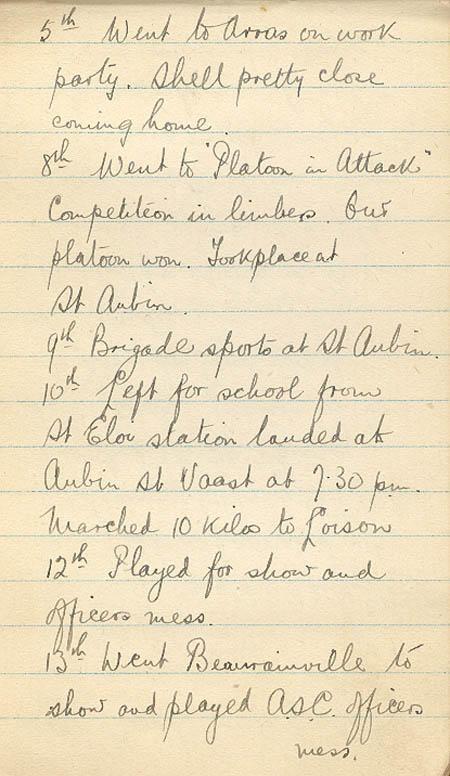 5th Went to Arras on work
party. Shell pretty close
coming home.
8th Went to "Platoon in Attack"
Competition in limbers. Our
platoon won. Took place at
St Aubin.
9th Brigade sports at St Aubin.
10th Left for school from
St Eloi station landed at
Aubin St Vaast at 7.30 pm.
Marched 10 Kilos to Loison
12th Played for show and
officers mess.
13th Went Beaurainville to
show and played A.S.C. officers
mess.